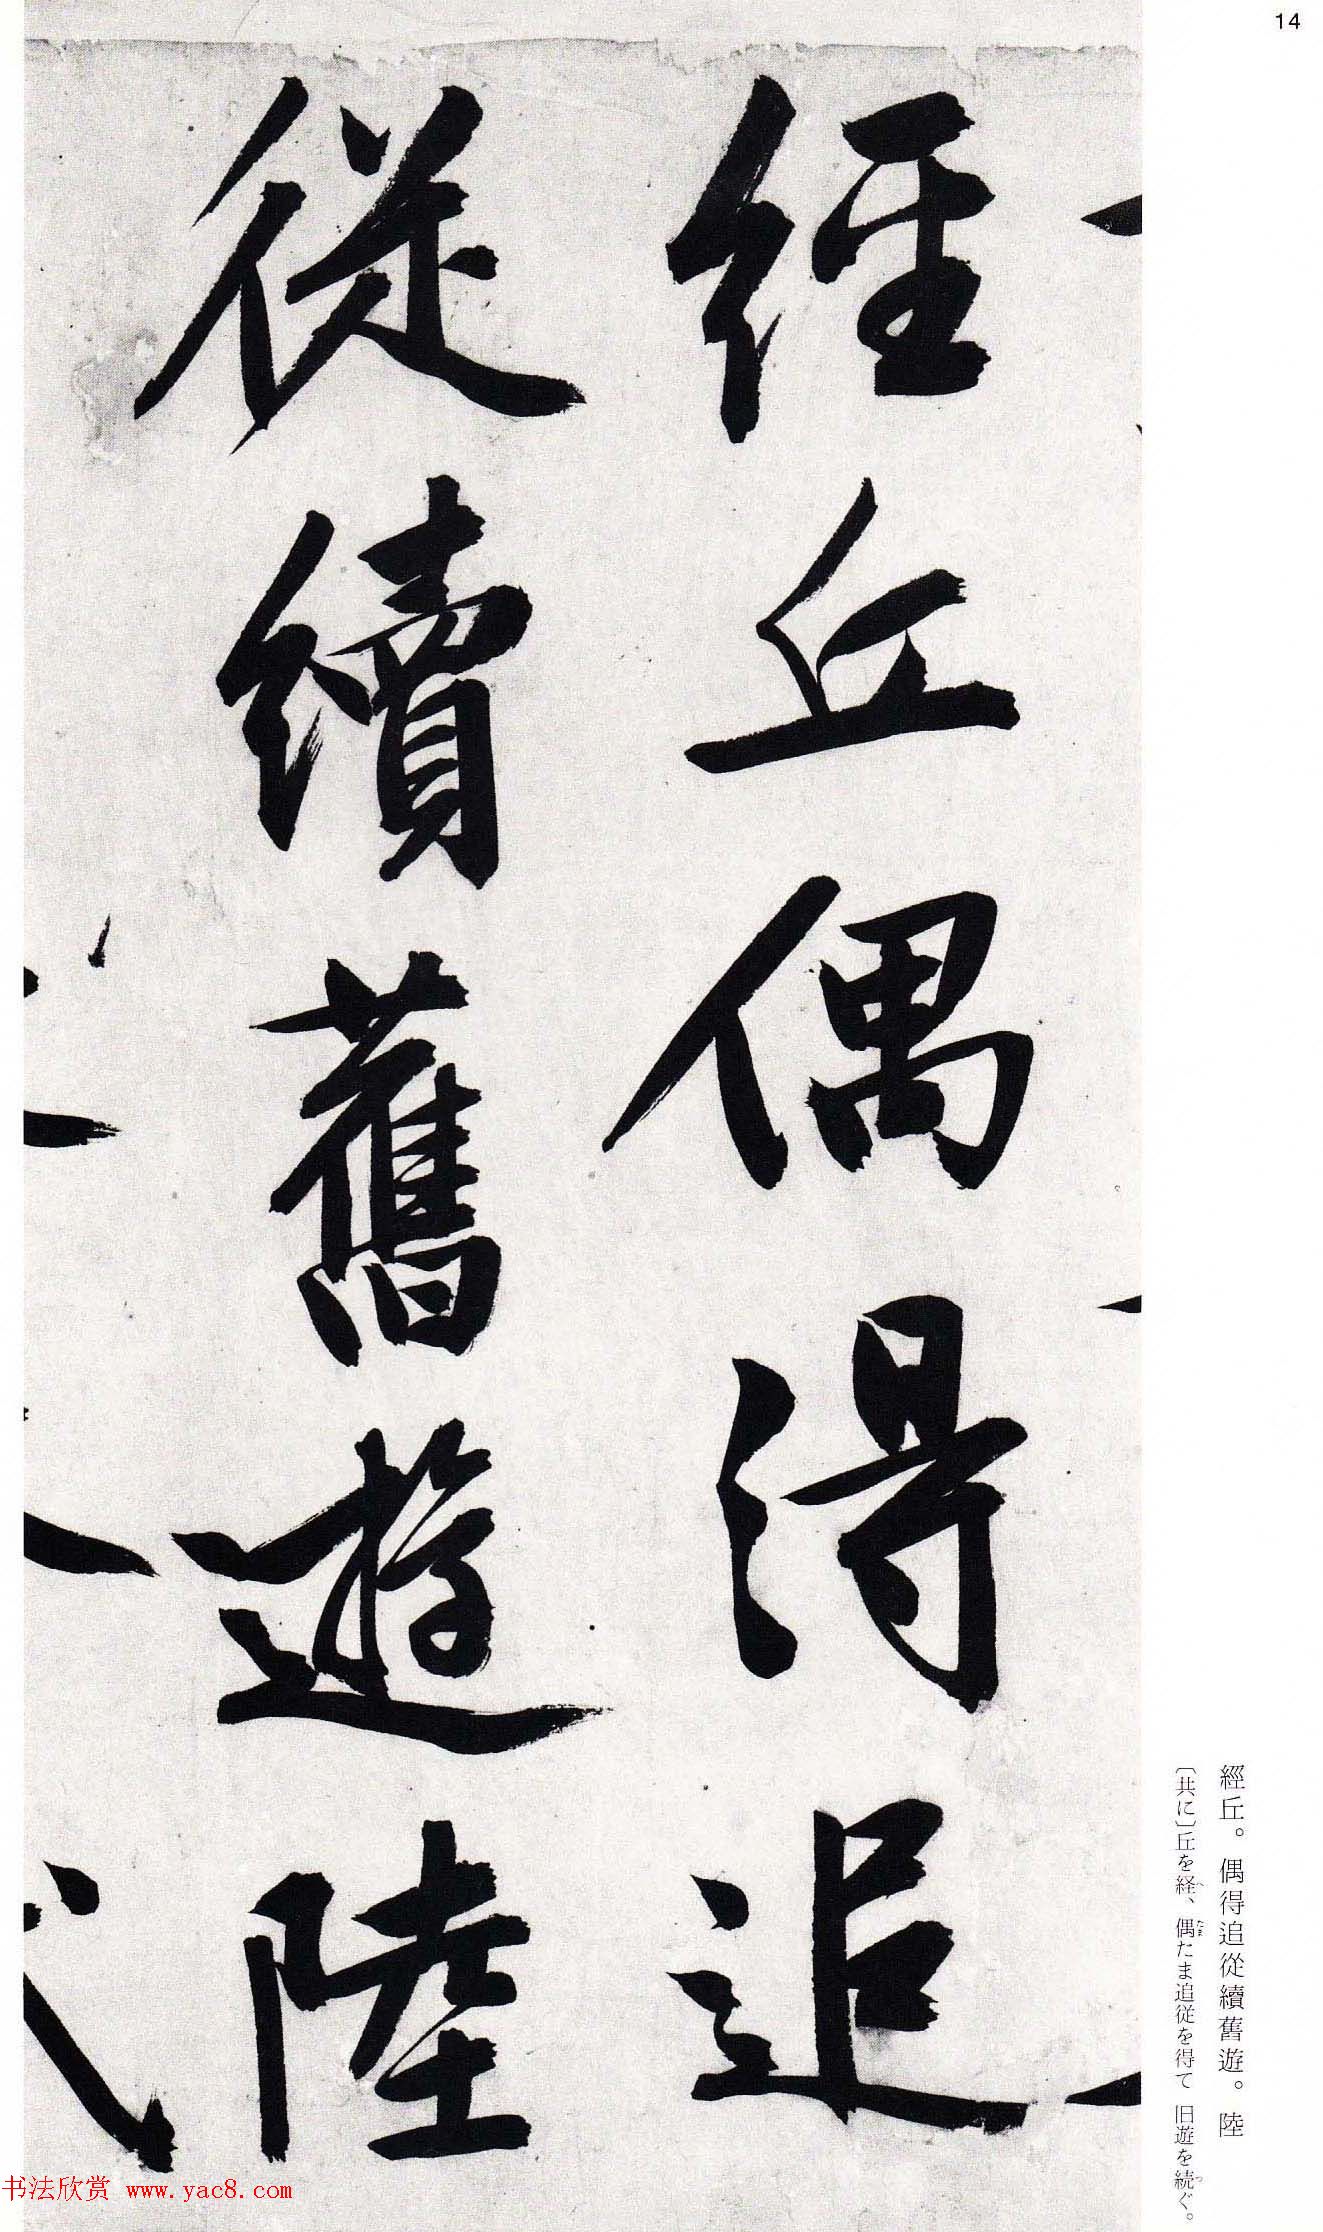 14
經丘偶得追
從續舊遊陸
經丘。偶得追從續舊遊。陸
〔共に〕丘を経、偶たま追従を得て 旧遊を続ぐ。
书法欣赏 www.yac8.com